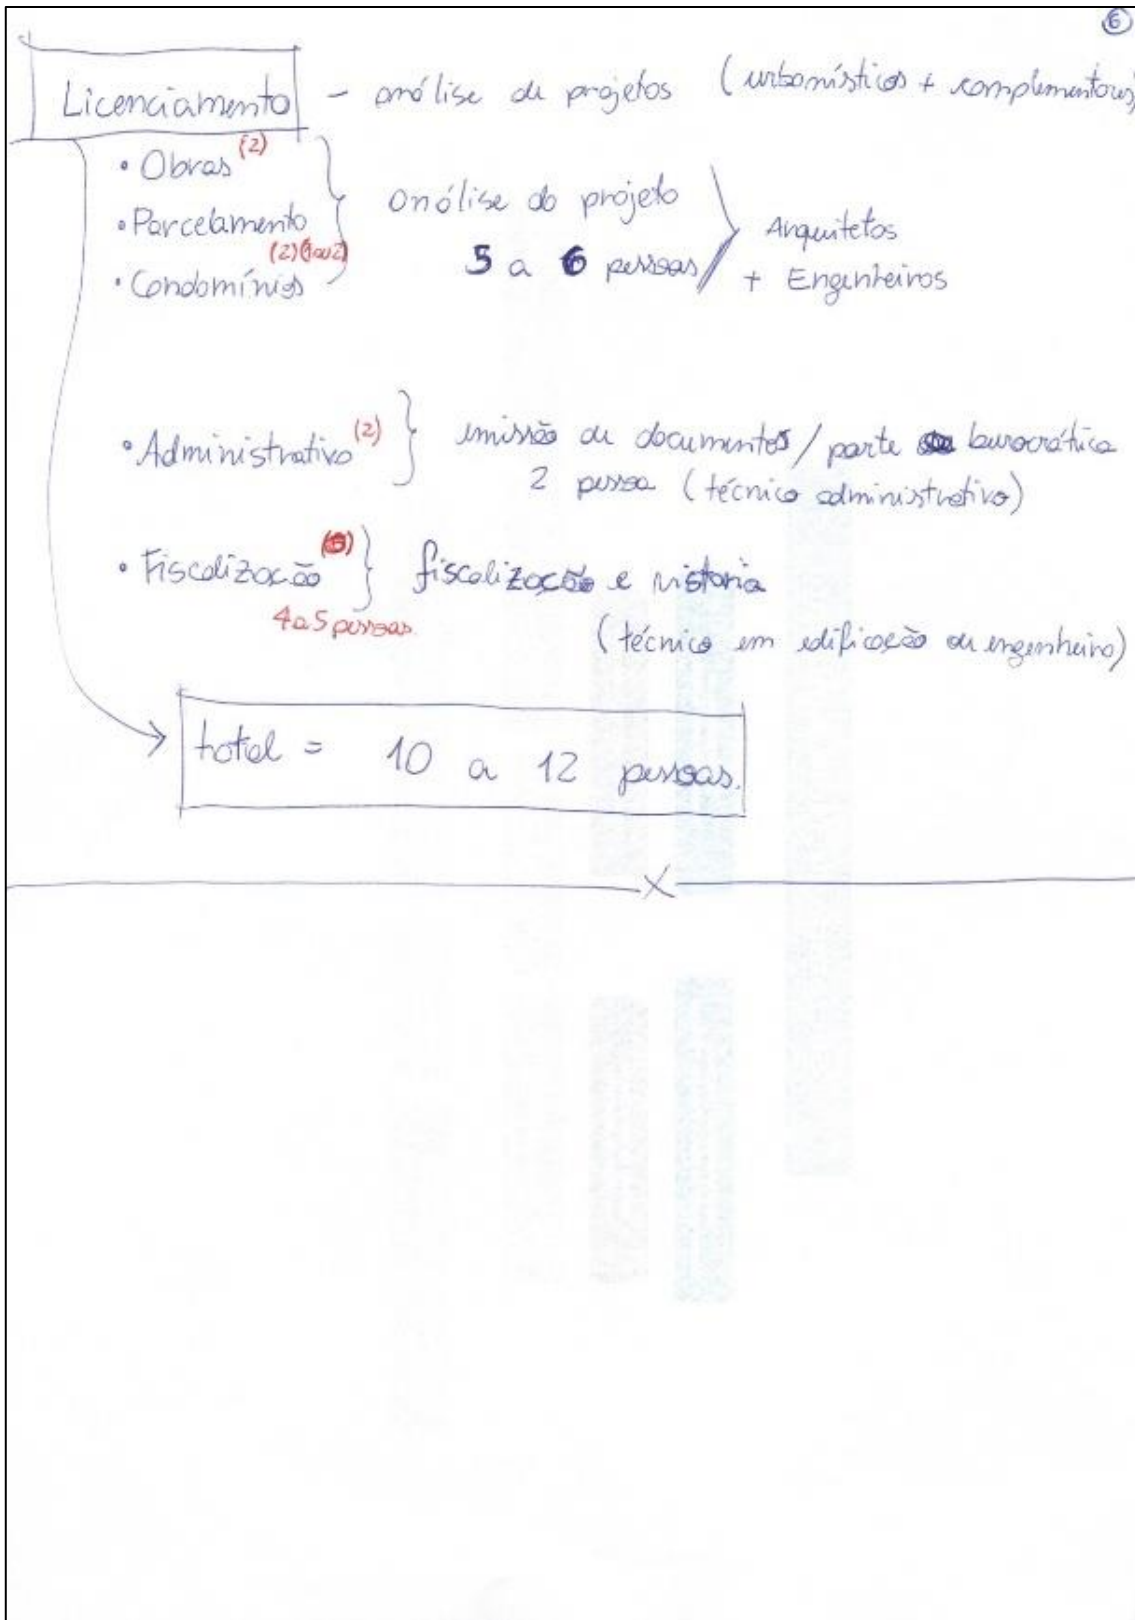 6
Licenciamento - análise de projetos (urbanísticos + complementares)
• Obras (2)
• Parcelamento
(2) (1 ou 2)
• Condomínios
análise do projeto
5 a 6 pessoas
Arquitetos
+ Engenheiros
• Administrativo (2) emissão de documentos / parte burocrática
2 pessoa (técnico administrativo)
• Fiscalização fiscalização e vistoria
4 a 5 pessoas.
(técnico em edificação ou engenheiro)
total = 10 a 12 pessoas.
X